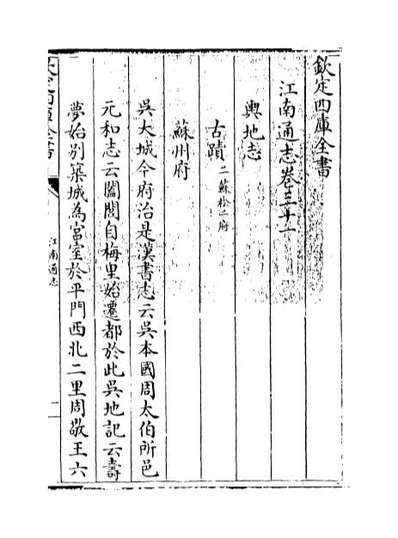 欽定四庫全書
江南通志卷三十一
輿地志
古蹟二蘇松二府
蘇州府
吳大城今府治是漢書志云吳本國周太伯所邑
元和志云闔閭自梅里始遷都於此吳地記云壽
夢始别築城為宮室於平門西北二里周敬王六
江南通志